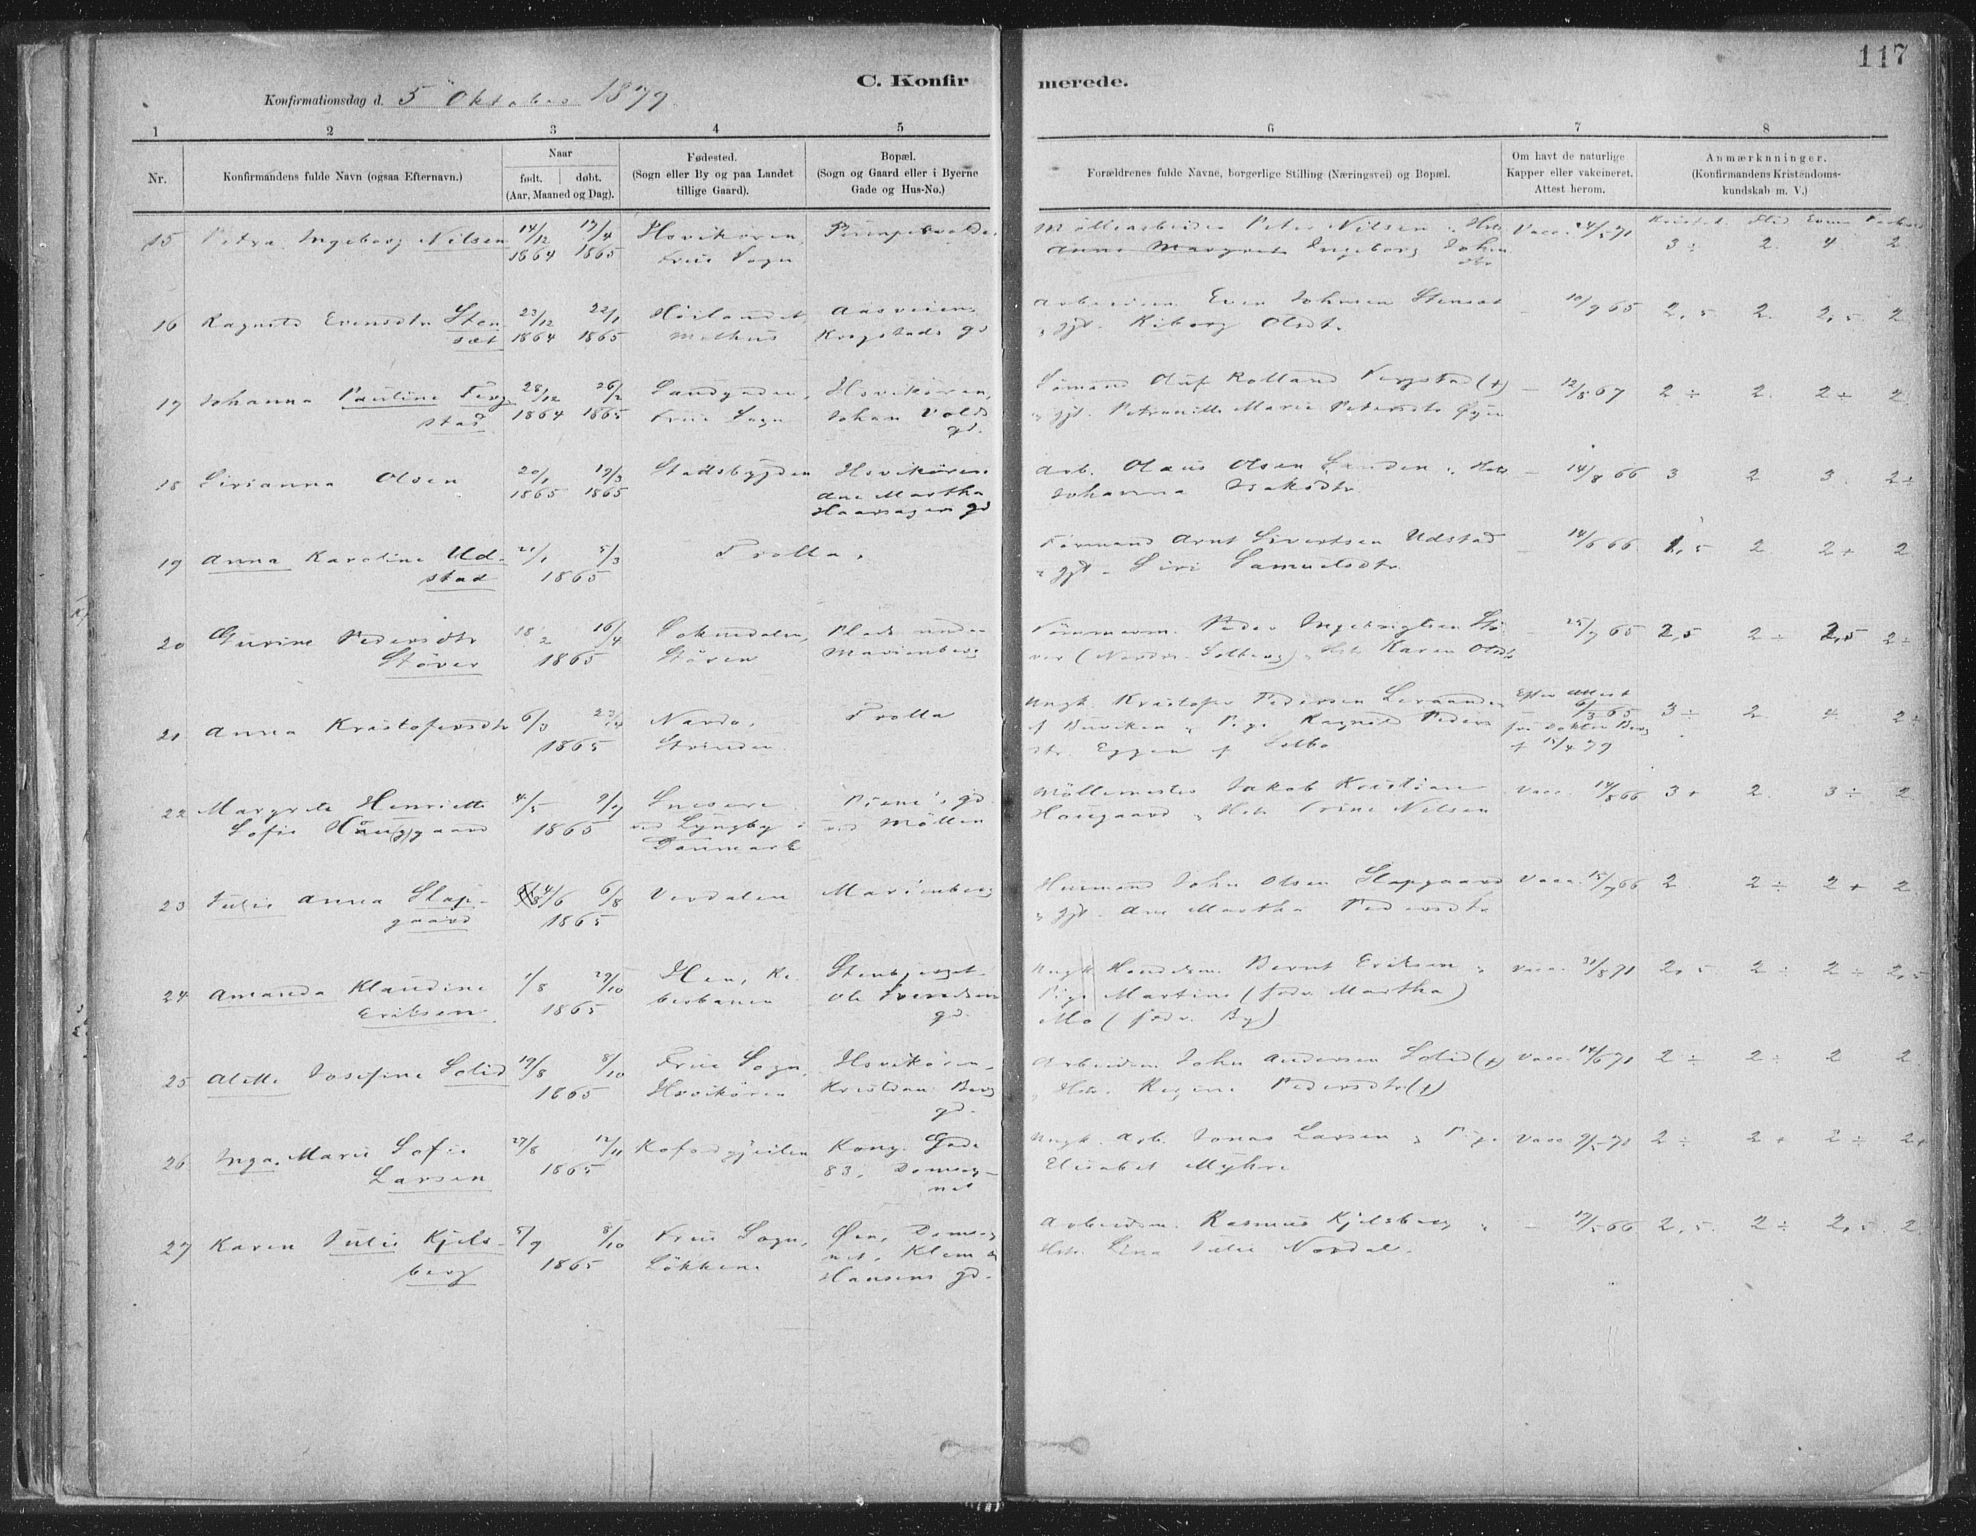 117
C. Konfir merede.
Konfirmationsdag d. 5 Oktober 1879.
1 2 3 4 5 6 7 8
Nr.
Konfirmandens fulde Navn (ogsaa Efternavn.)
Naar
født. døbt.
(Aar, Maaned og Dag).
Fødested.
(Sogn eller By og paa Landet
tillige Gaard).
Bopæl.
(Sogn og Gaard eller i Byerne
Gade og Hus-No.)
Forældrenes fulde Navne, borgerlige Stilling (Næringsvei) og Bopæl.
Om havt de naturlige
Kapper eller vakcineret.
Attest herom.
Anmærkninger.
(Konfirmandens Kristendoms-
kundskab m. V.)
15 Petra Ingeborg Nilsen 14/12 1864 17/4 1865 Hsvikören, Frue Sogn
Mølleearbeider Peter Nilsen Hst.
Anne Margrete Ingeborg Johnsdtr Vacc. 3 ÷ 2. 4 2
16 Ragnild Evensdtr Stensæt 23/12 1864 22/1 1865 Höilandet, Melhus Aasveien, Krogstads gd
Arbeidsm. Even Johnsen Stensæt
gjt. Kiberg Olsdt. — 10/9 65 2,5 2. 2,5 2
17 Johanna Pauline Fergstad 28/12 1864 26/2 1865 Frue Sogn Hsvikören, Johan Volds gd.
Sömand Oluf Rolland Fergstad (+) — 12/8 67 2 ÷ 2. 2 ÷ 2
gjt. Petronille Marie Petersdtr Øyen
18 Sirianna Olsen 20/1 1865 19/3 1865 Stadsbygden Hsvikören, Ane Martha Haarsagers gd
Arb. Olaus Olsen Sanden, Hst. — 14/8 66 3 2 3. 2 ÷
Johanna Isaksdtr.
19 Anna Karoline Udstad 21/1 5/3 1865 Trolla.
Formand Arnt Sivertsen Udstad — 14/6 66 1,5 2 2 + 2
gjt. Siri Samuelsdtr.
20 Gurine Pedersdtr Støver 18/2 16/4 1865 Soknedalen, Stören Plads under Marienberg
Tömmerm. Peder Ingebrigtsen Stö-
ver (Nordre Solberg), Hst. Karen Olsdt 25/9 65 2,5 2 ÷ 2,5 2 ÷
21 Anna Kristofersdtr 6/3 23/4 1865 Nardo, Strinden. Trolla
Ungk. Kristofer Pedersen Leraanden
af Buviken, Pige Ragnild Peders-
dtr. Eggen af Selbo
Efter attest
6/3 65
fra Doktor Berg
af 15/4 79 3 ÷ 2 4. 2 ÷
22 Margrete Henriette Sofie Haugaard 4/5 9/7 1865 ved Lyngby i Danmark gd. ved Möllen
Möllemester Jakob Kristian
Hougaard, Hst. Trine Nilsen Vacc. 14/8 66 3 + 2 3 ÷ 2
23 Julie Anna Slapgaard 4/6 6/8 1865 Verdalen Marienberg
Husmand John Olsen Slapgaard Vacc. 15/9 66 2 2 ÷ 2 + 2
gjt. Ane Martha Pedersdtr
24 Amanda Klaudine Eriksen 1/8 29/10 1865 Ilen, Reberbanen Stenbjerget. Ole Svendsens gd.
Ungk. Handelsm. Bernt Eriksen Vacc. 31/8 71 2,5 2 ÷ 2 ÷ 2,5
Pige Martine (födr. Martha)
Mo (födr. By)
25 Alette Josefine Solid 19/8 8/10 1865 Frue Sogn, Hsvikören Hsvikören, Kristian Berg gd.
Arbeidsm. John Andersen Solid (+) Vacc. 14/6 71 2 ÷ 2 ÷ 2 2
Hst. Regine Pedersdtr (+)
26 Inga Marie Sofie Larsen 27/8 12/11 1865 Kofodgjeilen Kong. Gade 83, Domsognet
Ungk. Arb. Jonas Larsen, Pige Vacc. 2 ÷ 2 + 2 ÷ 2 +
Elisabet Myhre
27 Karen Julie Kjelsberg 5/9 8/10 1865 Frue Sogn, Lökkene Øen, Domsognet, Klem Hansens gd.
Arbeidsm. Rasmus Kjelsberg — 17/5 66 2,5. 2 ÷ 2,5. 2
Hst. Lina Julie Nordal.